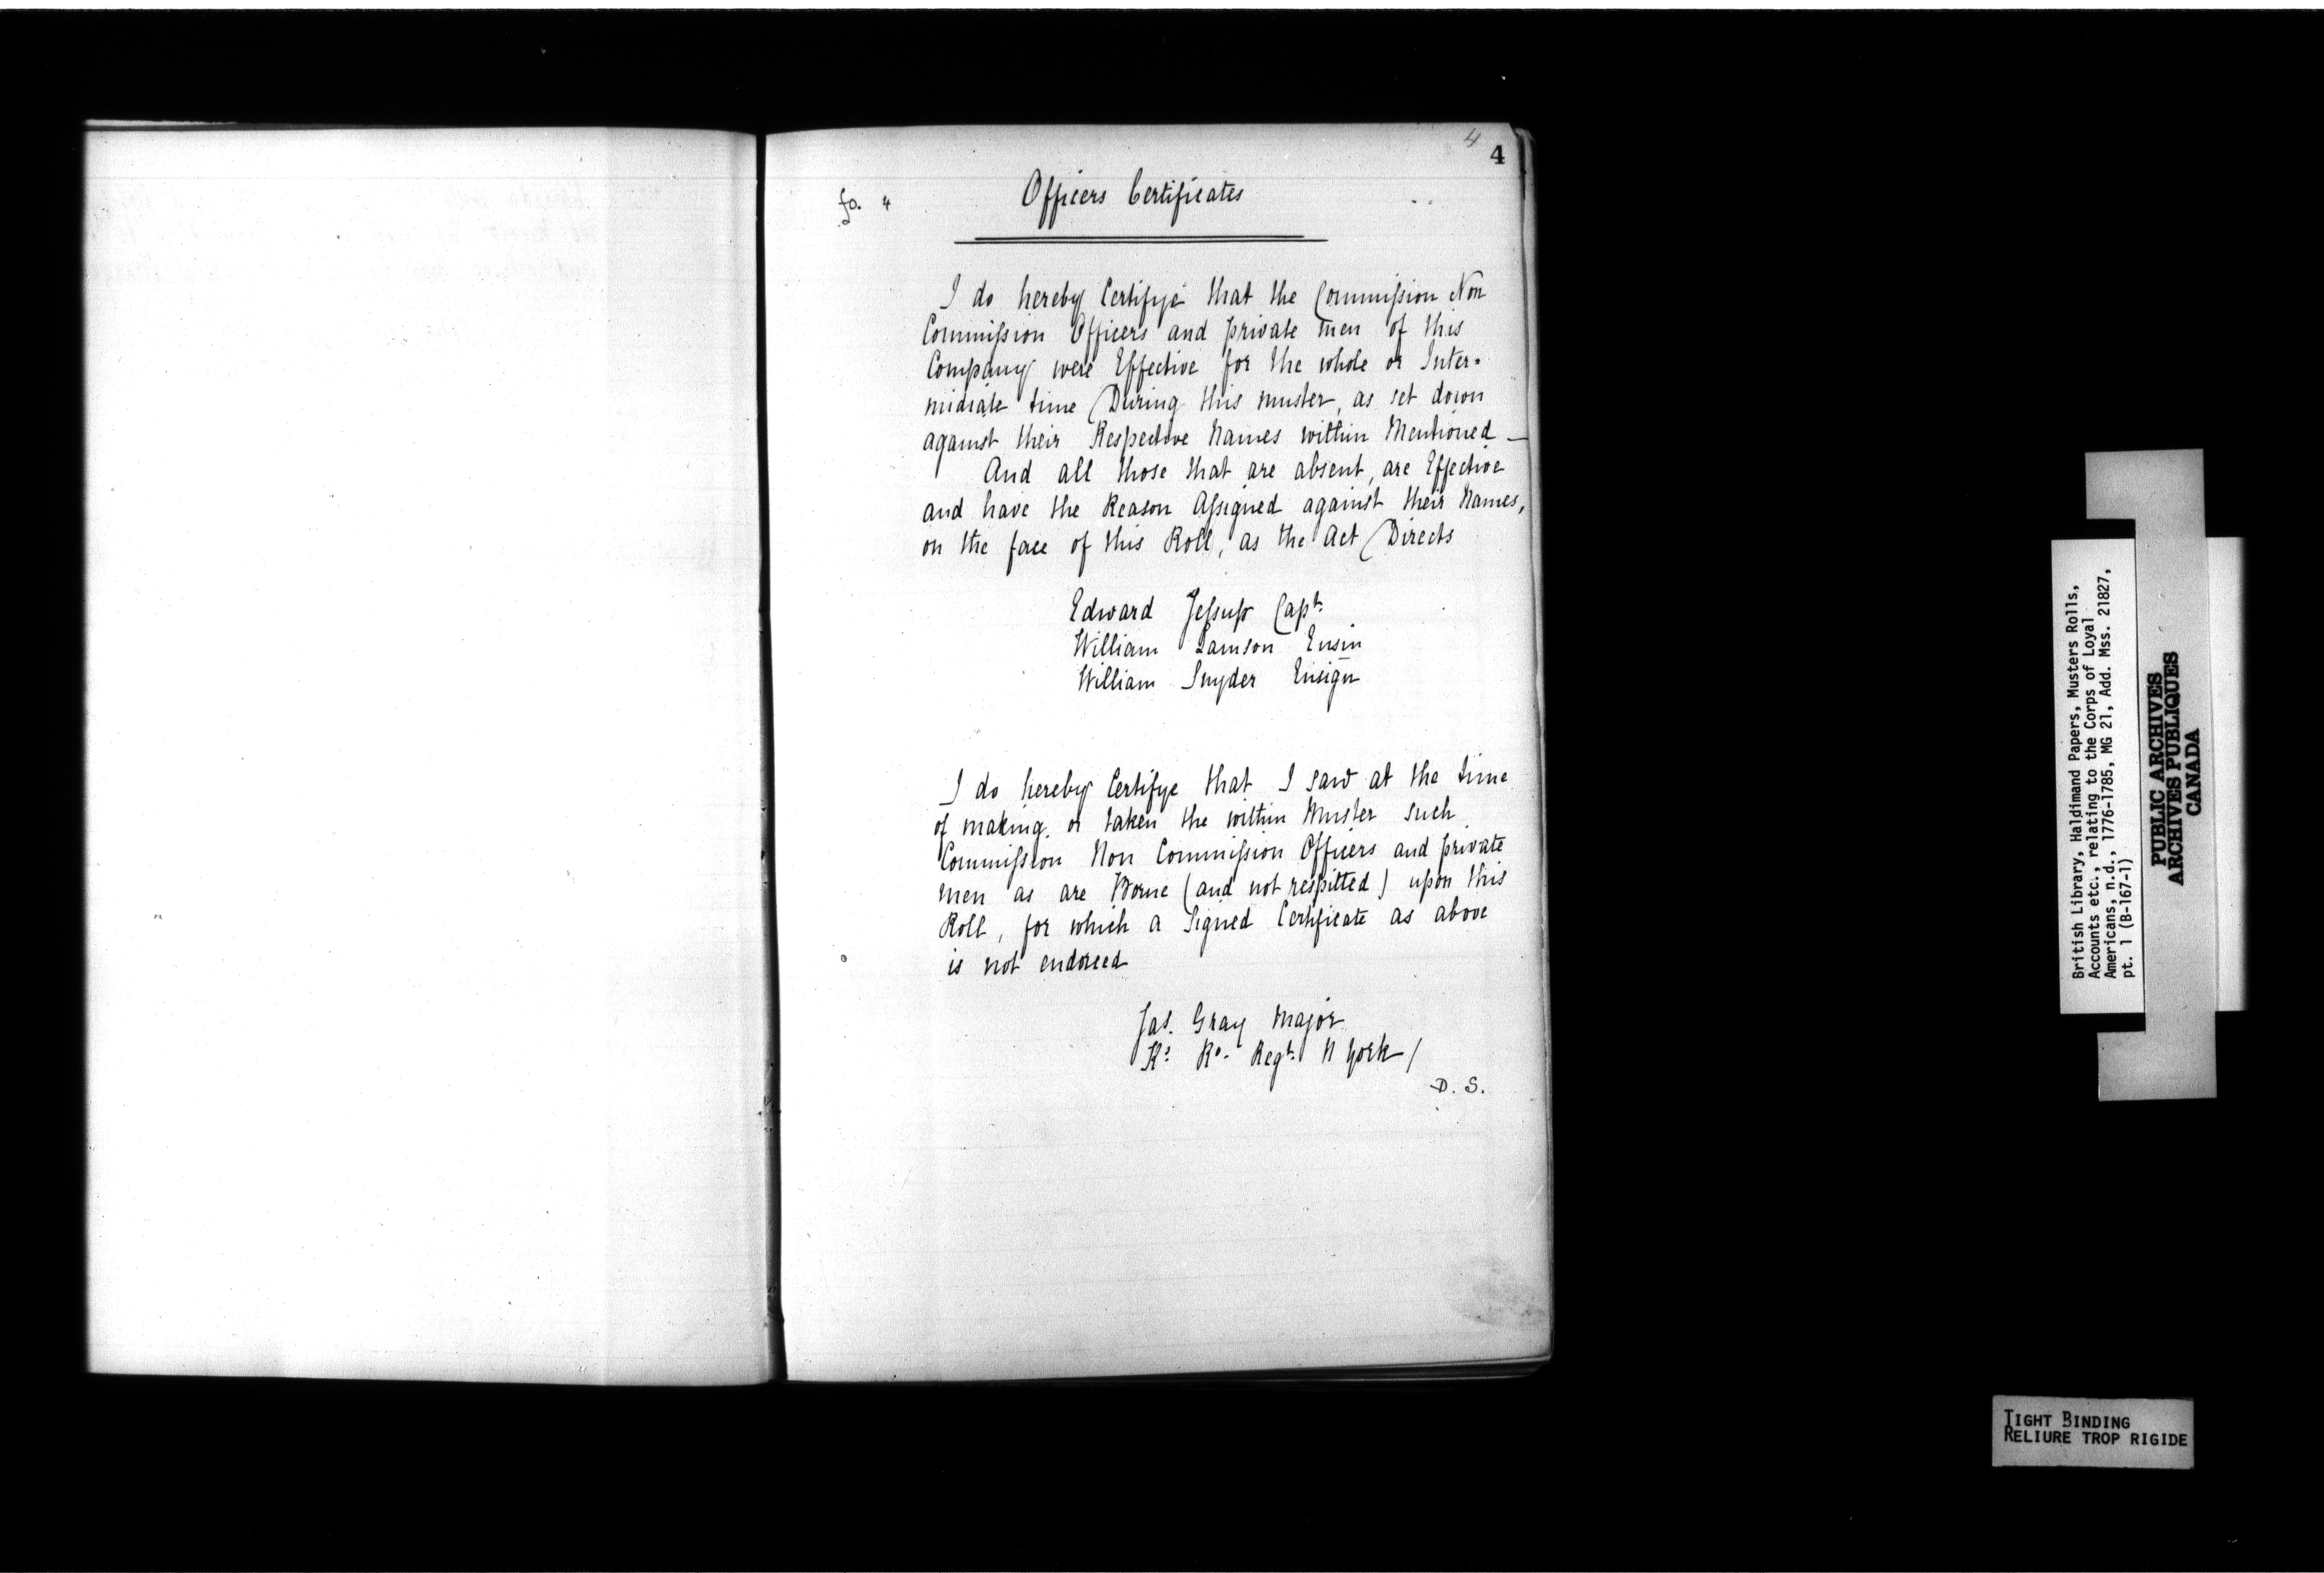 4
4
fo. 4
Officers Certificates
I do hereby Certifye that the Commission Non
Commission Officers and private men of this
Company were Effective for the whole or Inter-
midiate time During this muster, as set down
against their Respective Names within Mentioned —
And all those that are absent, are Effective
and have the Reason Assigned against their Names,
on the face of this Roll, as the Act Directs
Edward Jessup Capt.
William Lamson Ensin
William Snyder Ensign
I do hereby Certifye that I saw at the time
of making or taken the within Muster such
Commission Non Commission Officers and private
men as are Borne (and not respitted) upon this
Roll, for which a Signed Certificate as above
is not endorced
Jas. Gray Major
Rs. Ro. Regt. N York /
D. S.
British Library, Haldimand Papers, Musters Rolls,
Accounts etc., relating to the Corps of Loyal
Americans, n.d., 1776-1785, MG 21, Add. Mss. 21827,
pt. 1 (B-167-1)
PUBLIC ARCHIVES
ARCHIVES PUBLIQUES
CANADA
TIGHT BINDING
RELIURE TROP RIGIDE